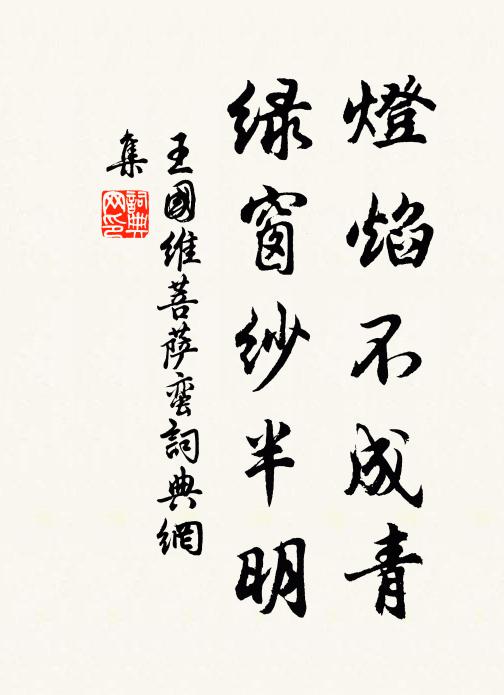 燈焰不成青
緑窗紗半明
王國維菩薩蠻詞典網
集
詞典網印